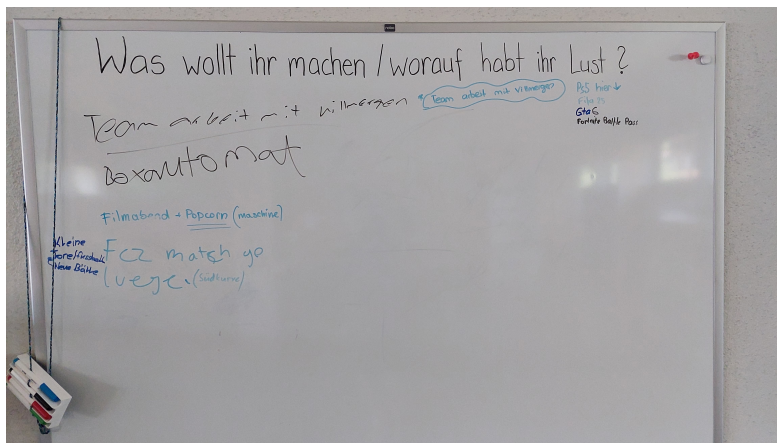 Was wollt ihr machen / worauf habt ihr Lust ?
Team arbeit mit villmergen
Team arbeit mit villmergen
PS5 hier ↓
Fifa 25
Gta 6
Fortnite Battle Pass
Boxautomat
Filmabend + Popcorn (maschine)
Kleine
Tore/fussball
Neue Bälle
Fcz match go
luege. (Südkurve)